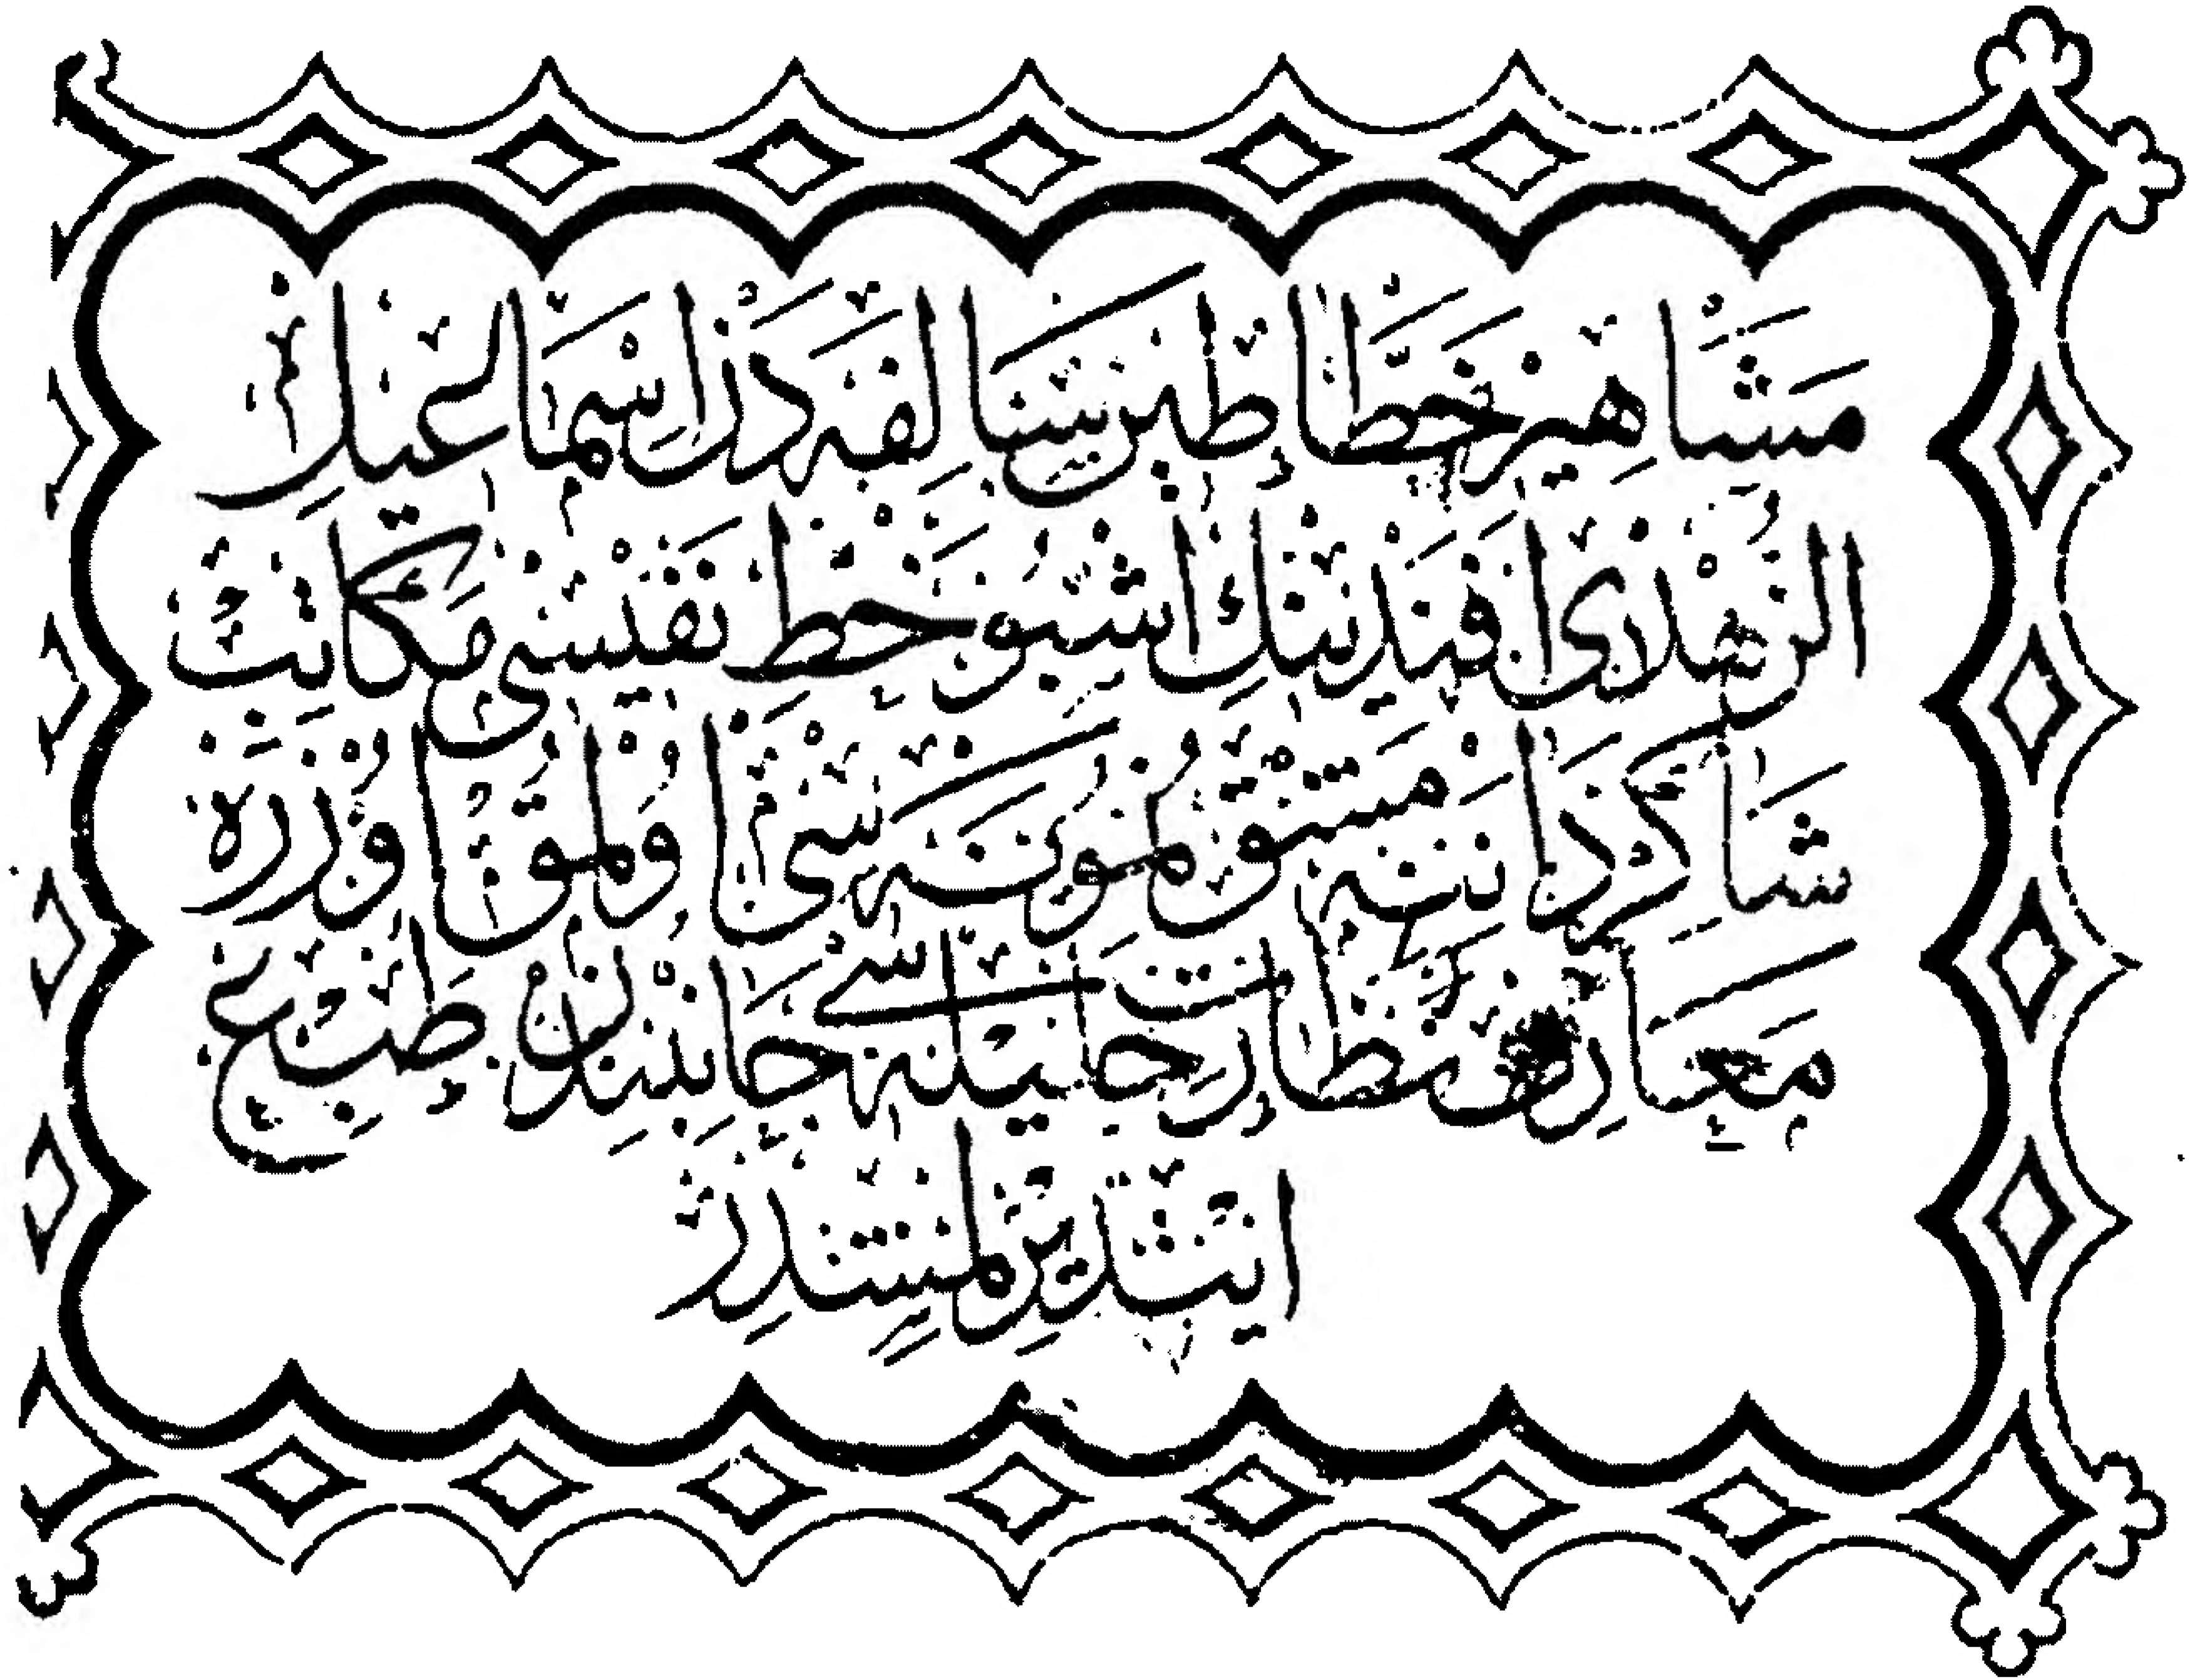 مشاهير خطاطين سالفه دن اسماعيل
الزهدى افندينك اشبو خط نفيسى مكاتب
شاكرداننه مشق نمونه سى اولمق اوزره
معارف نظارت جليله سى جانبندن طبع
ايتديرلمشدر